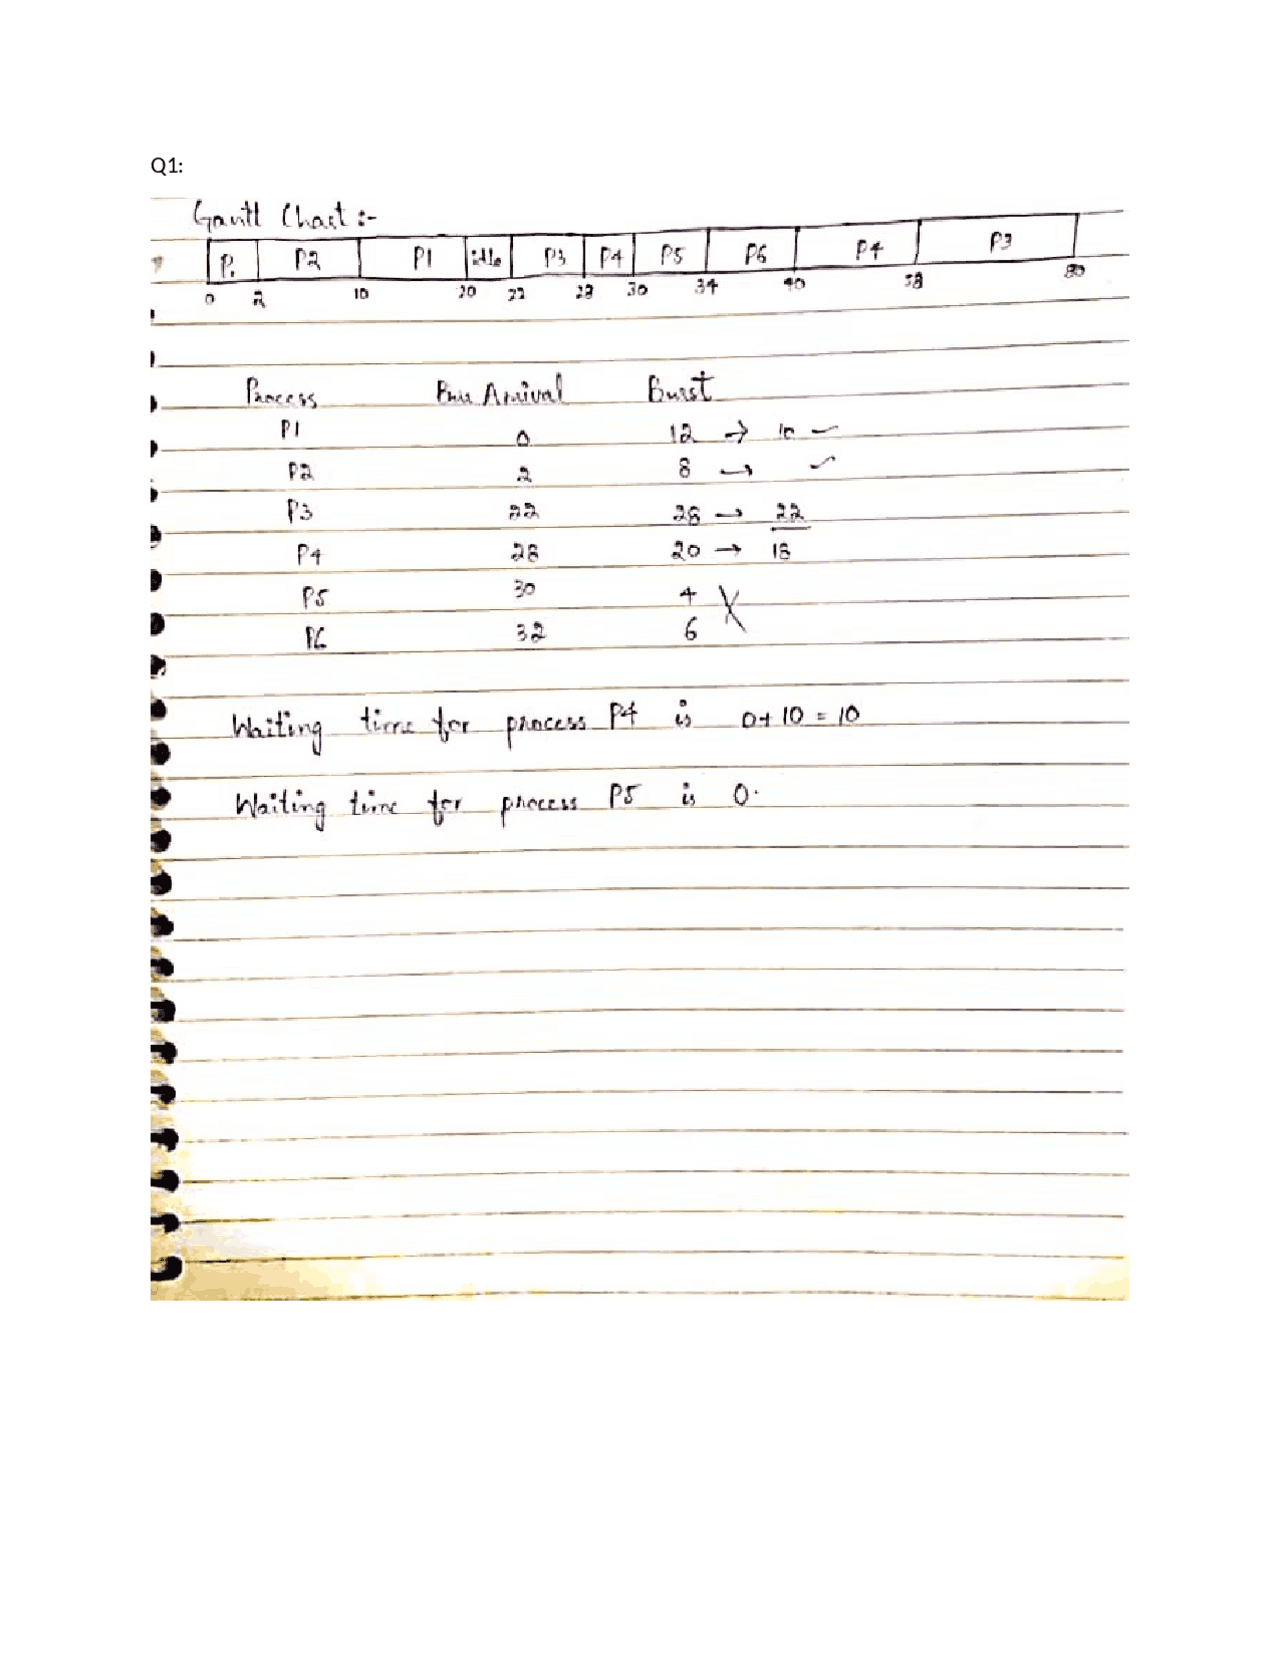 Q1:
Gantt Chart :-
P1 P2 P1 idle P3 P4 P5 P6 P4 P3
0 2 10 20 22 28 30 34 40 58 80
Process Arrival Burst
P1 0 12 → 10
P2 2 8 →
P3 22 28 → 22
P4 28 20 → 18
P5 30 4
P6 32 6
Waiting time for process P4 is 0+10=10
Waiting time for process P5 is 0.